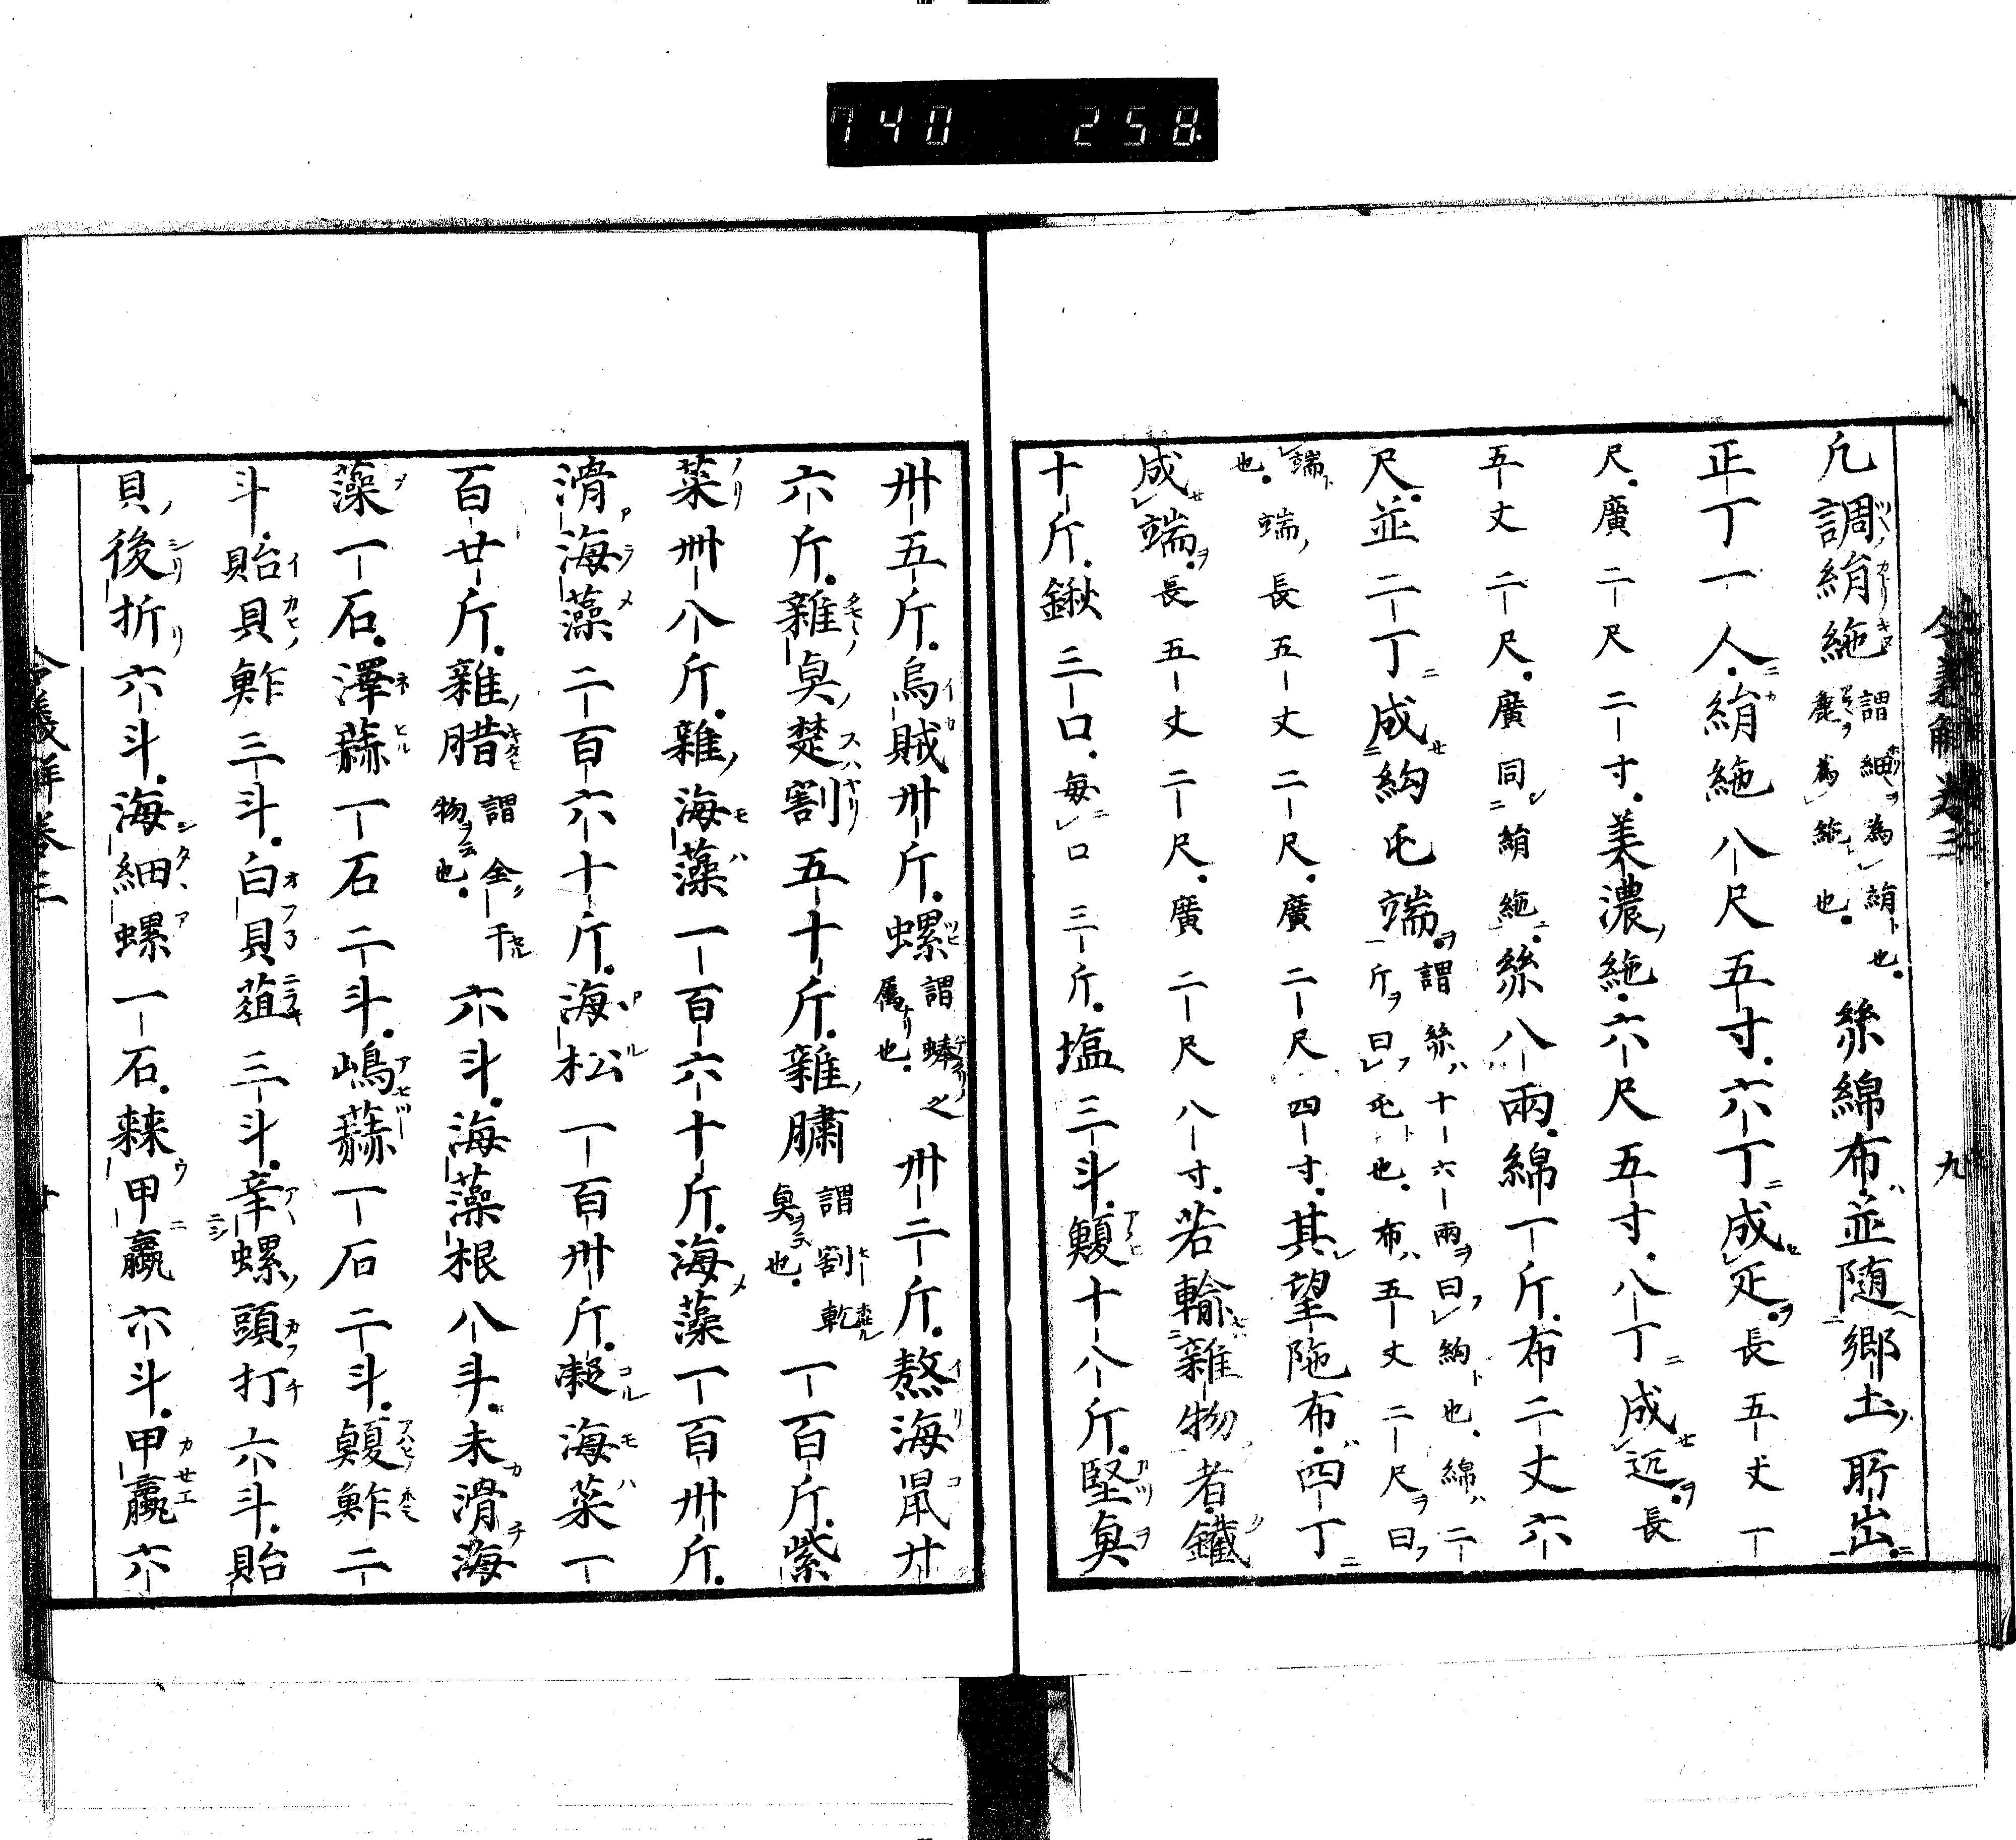 740 258
令義解卷三 九
凡調絹絁謂細爲絹也麁爲絁也絲綿布並随郷土所出
正丁一人絹絁八尺五寸六丁成疋長五丈一
尺廣二尺二寸美濃絁六尺五寸八丁成疋長
五丈二尺廣同絹絁絲八兩綿一斤布二丈六
尺並二丁成絇屯端謂絲十六兩曰絇也綿二斤曰屯也布五丈二尺曰
端也端長五丈二尺廣二尺四寸其望陁布四丁
成端長五丈二尺廣二尺八寸若輸雜物者鐵
十斤鍬三口毎口三斤塩三斗鰒十八斤堅魚
卅五斤烏賊卅斤螺謂蜯之属也卅二斤熬海鼠廿
六斤雜魚楚割五十斤雜腊謂割乾魚云也一百斤紫
菜卌八斤雜海藻一百六十斤海藻一百卅斤
滑海藻二百六十斤海松一百卅斤凝海菜一
百廿斤雜腊謂全干物云也六斗海藻根八斗未滑海
藻一石澤蒜一石二斗嶋蒜一石二斗鰒鮓二
斗貽貝鮓三斗白貝葅三斗辛螺頭打六斗貽
貝後折六斗海細螺一石棘甲蠃六斗甲蠃六
令義解卷三 十